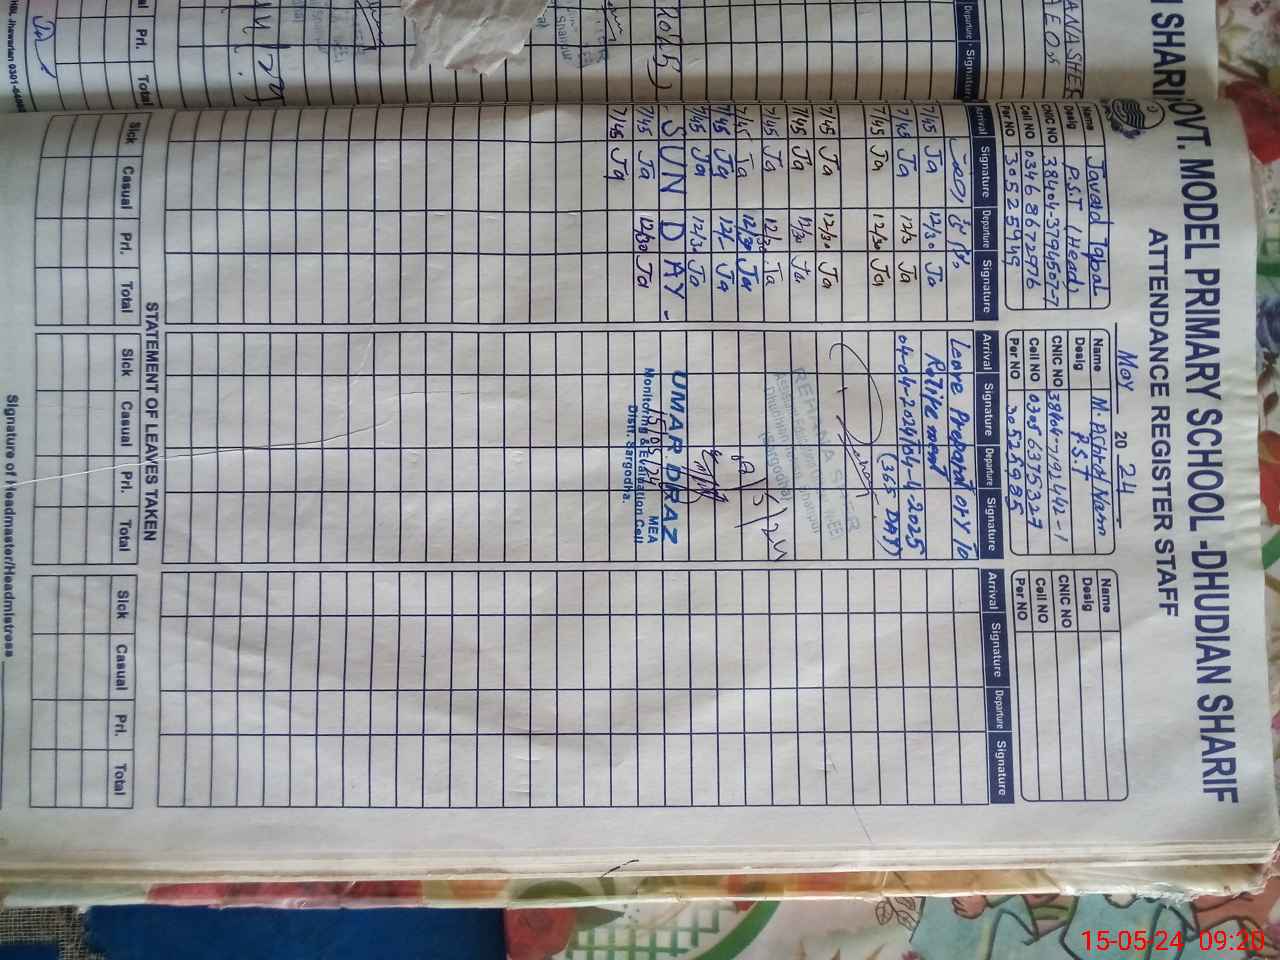 GOVT. MODEL PRIMARY SCHOOL -DHUDIAN SHARIF
ATTENDANCE REGISTER STAFF
May 20 24
Name Javaid Iqbal
Desig P.S.T (Head)
CNIC NO 38404-3794507-7
Cell NO 0346 8672976
Per NO 30525949
Arrival Signature Departure Signature
7/45 Ja 12/30 Ja
7/45 Ja 12/3 Ja
7/45 Ja 12/30 Ja
7/45 Ja 12/30 Ja
7/45 Ja 12/30 Ja
7/45 Ja 12/30 Ja
7/45 Ja 12/30 Ja
7/45 Ja 12/ Ja
7/45 Ja 12/30 Ja
- SUN DAY -
7/45 Ja 12/30 Ja
7/45 Ja
Name M. Ashraf Nasir
Desig P.S.T
CNIC NO 38404-7192442-1
Cell NO 0305 6375327
Per NO 30525985
Arrival Signature Departure Signature
Leave Preparatory to
Ratirement
04-04-2024 To 04-4-2025
(365 DAY)
REHANA SITER
(Sargodha)
15/24
UMAR DRAZ
MEA
Monitoring & Evaluation Cell
Distt. Sargodha.
15/05/24
Name
Desig
CNIC NO
Cell NO
Per NO
Arrival Signature Departure Signature
STATEMENT OF LEAVES TAKEN
Sick Casual Pri. Total
Sick Casual Pri. Total
Sick Casual Pri. Total
Signature of Headmaster/Headmistress
Pri. Total
Departure Signature
15-05-24 09:20